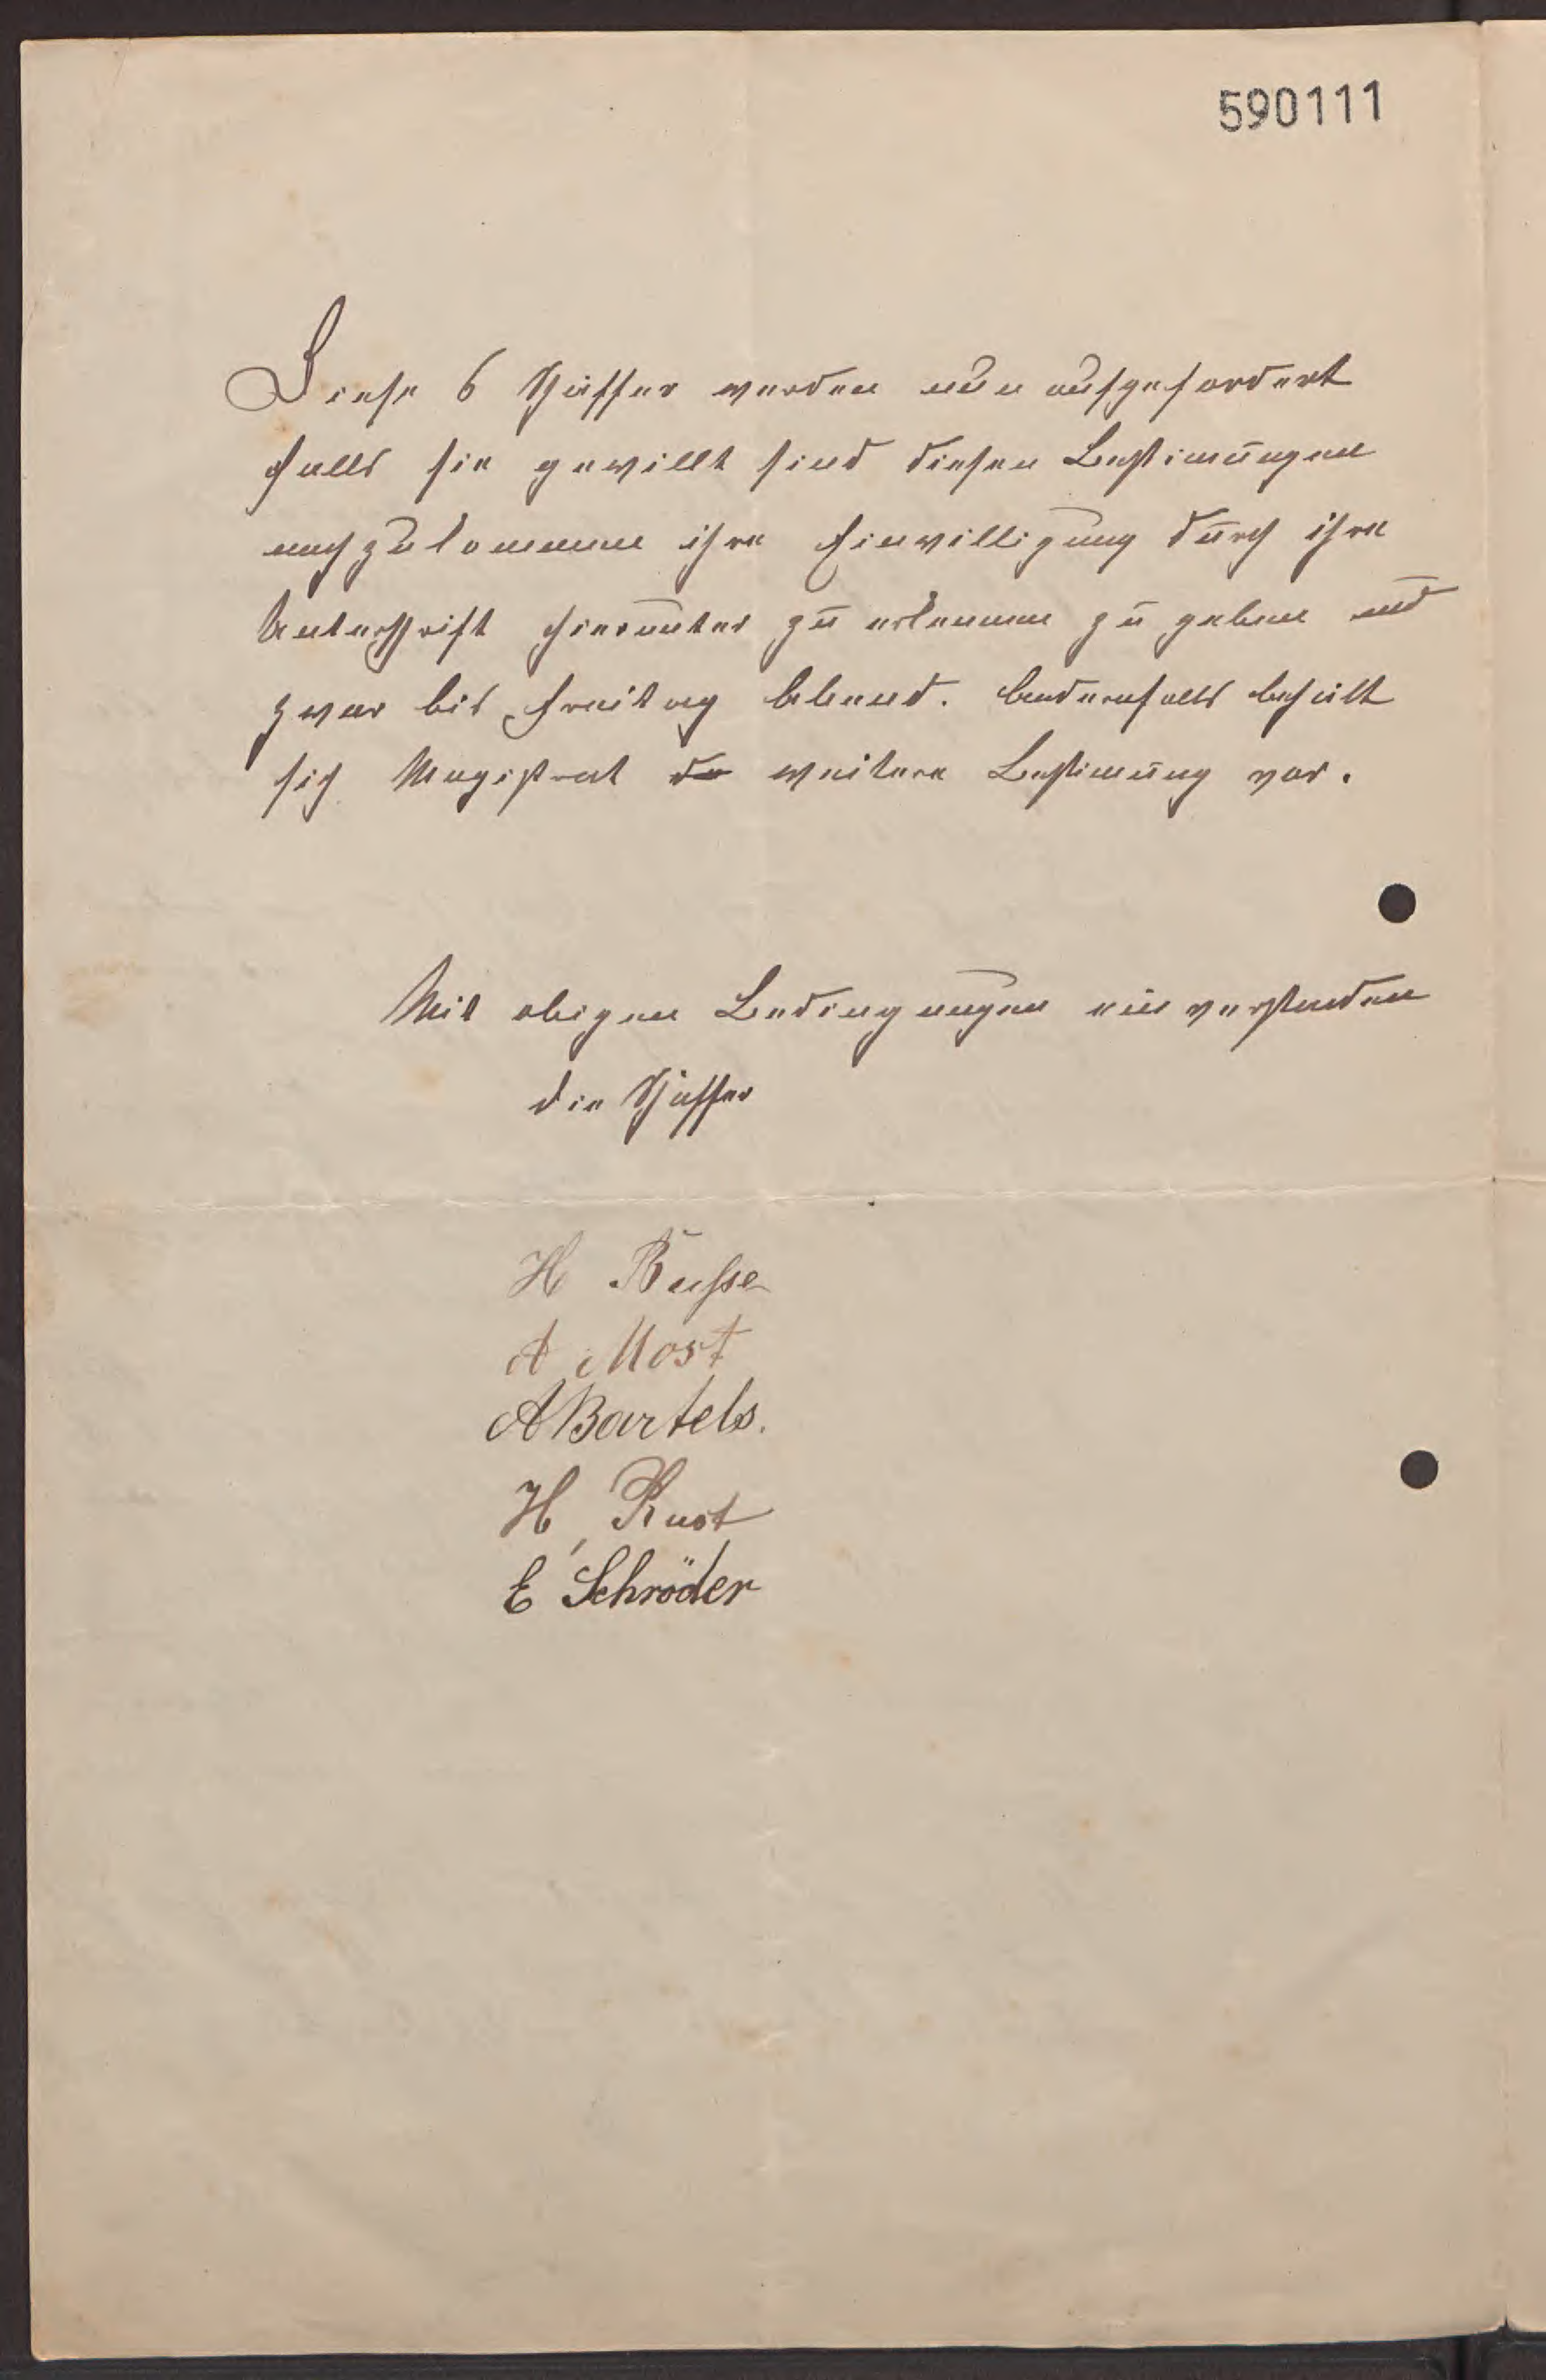 590111
Diese 6 Schaffer werden nun aufgefordert
falls sie gewillt sind diesen Bestim̄ungen
nachzukommen ihre Einwilligung durch ihre
Unterschrift hierunter zu erkennen zu geben und
zwar bis Freitag Abend. Andernfalls behält
sich Magistrat de weitere Bestim̄ung vor.
Mit obigen Bedingungen einverstanden
die Schaffer
H Busse
A Most
A Bartels.
H, Rust
E Schröder